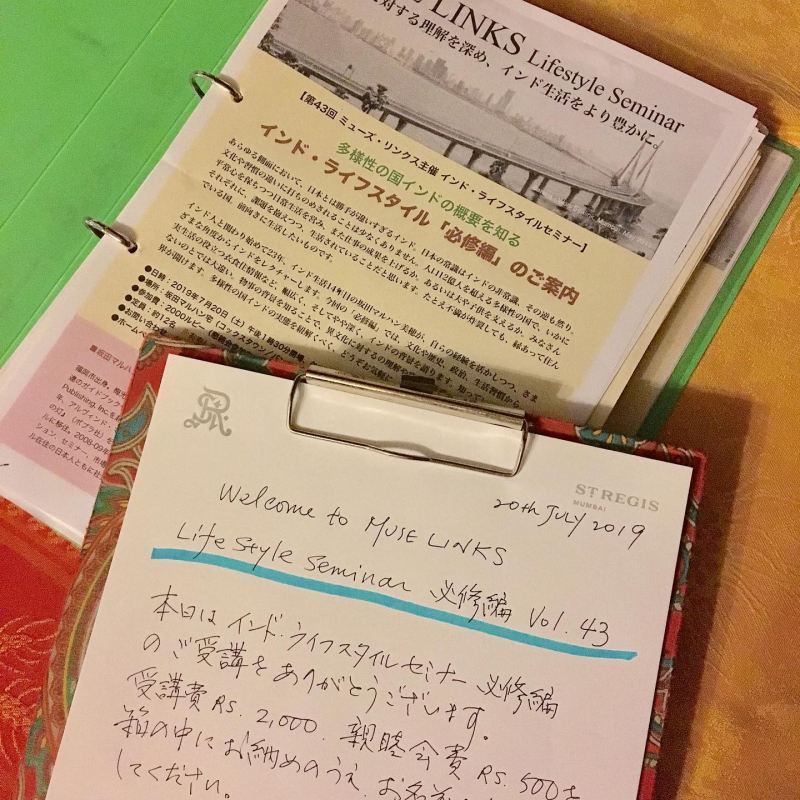 LINKS Lifestyle Seminar
対する理解を深め、インド生活をより豊かに。
【第43回 ミューズ・リンクス主催 インド・ライフスタイルセミナー】
多様性の国インドの概要を知る
インド・ライフスタイル「必修編」のご案内
あらゆる側面において、日本とは勝手が違いすぎるインド。日本の常識はインドの非常識、その逆も然り。
文化や習慣の違いに打ちのめされることは少なくありません。人口12億人を超える多様性の国で、いかに
平常心を保ちつつ日常生活を営み、また仕事の成果を上げるか、あるいは夫や子供を支えるか。みなさん
それぞれに、課題を越えつつ、生活されていることだと思います。たとえ不満が炸裂しても、縁あって住ん
でいる国。前向きに生活したいものです。
インド人と関わり始めて23年、インド生活14年目の坂田マルハン美穂が、自らの経験を活かしつつ、さま
ざまな角度からインドをレクチャーします。今回の「必修編」では、文化や歴史、政治、生活習慣から
実生活の役立つ衣食住情報など、幅広く、そしてやや深く、インドの背景を語ります。知って
ないのとでは大違い。物事の背景を知ることで、異文化に対する理解や
界が開けます。多様性の国インドの実態を紐解くべく、どうぞお気軽に
●日時：2019年7月20日（土）午後1時30分開場
●場所：坂田マルハン宅（コックスタウン）
●参加費：2000ルピー
●定員：約12名
●お問い合わせ
●ホームペ
坂田マルハ
福岡市出身。
達のガイドブック
Publishing, Inc.を
年、アルヴィンド・
の灯」（ポプラ社）を
ルに移住。2008-09年
ション、セミナー、市場
ル在住の日本人ともに社
ST REGIS
MUMBAI
20th JULY 2019
Welcome to MUSE LINKS
Life Style Seminar 必修編 Vol. 43
本日は インド・ライフスタイルセミナー 必修編
のご受講を ありがとうございます。
受講費 RS. 2,000. 親睦会費 RS. 500を
箱の中に お納めのうえ、お名前
してください。